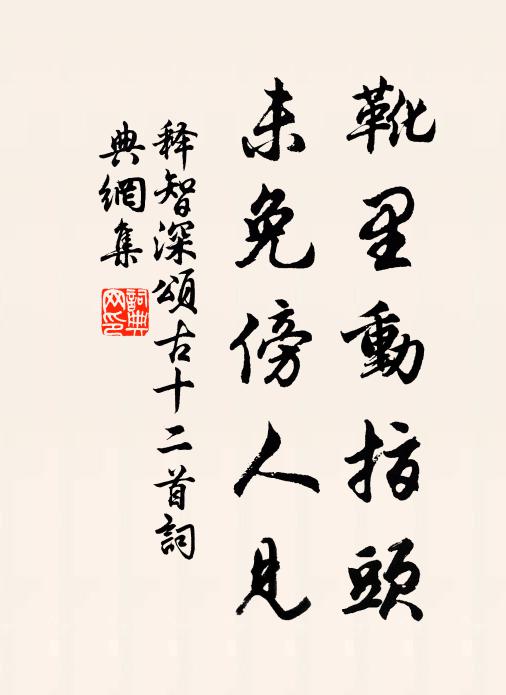 靴里動指頭
未免傍人見
释智深頌古十二首詞
典網集
詞典网印